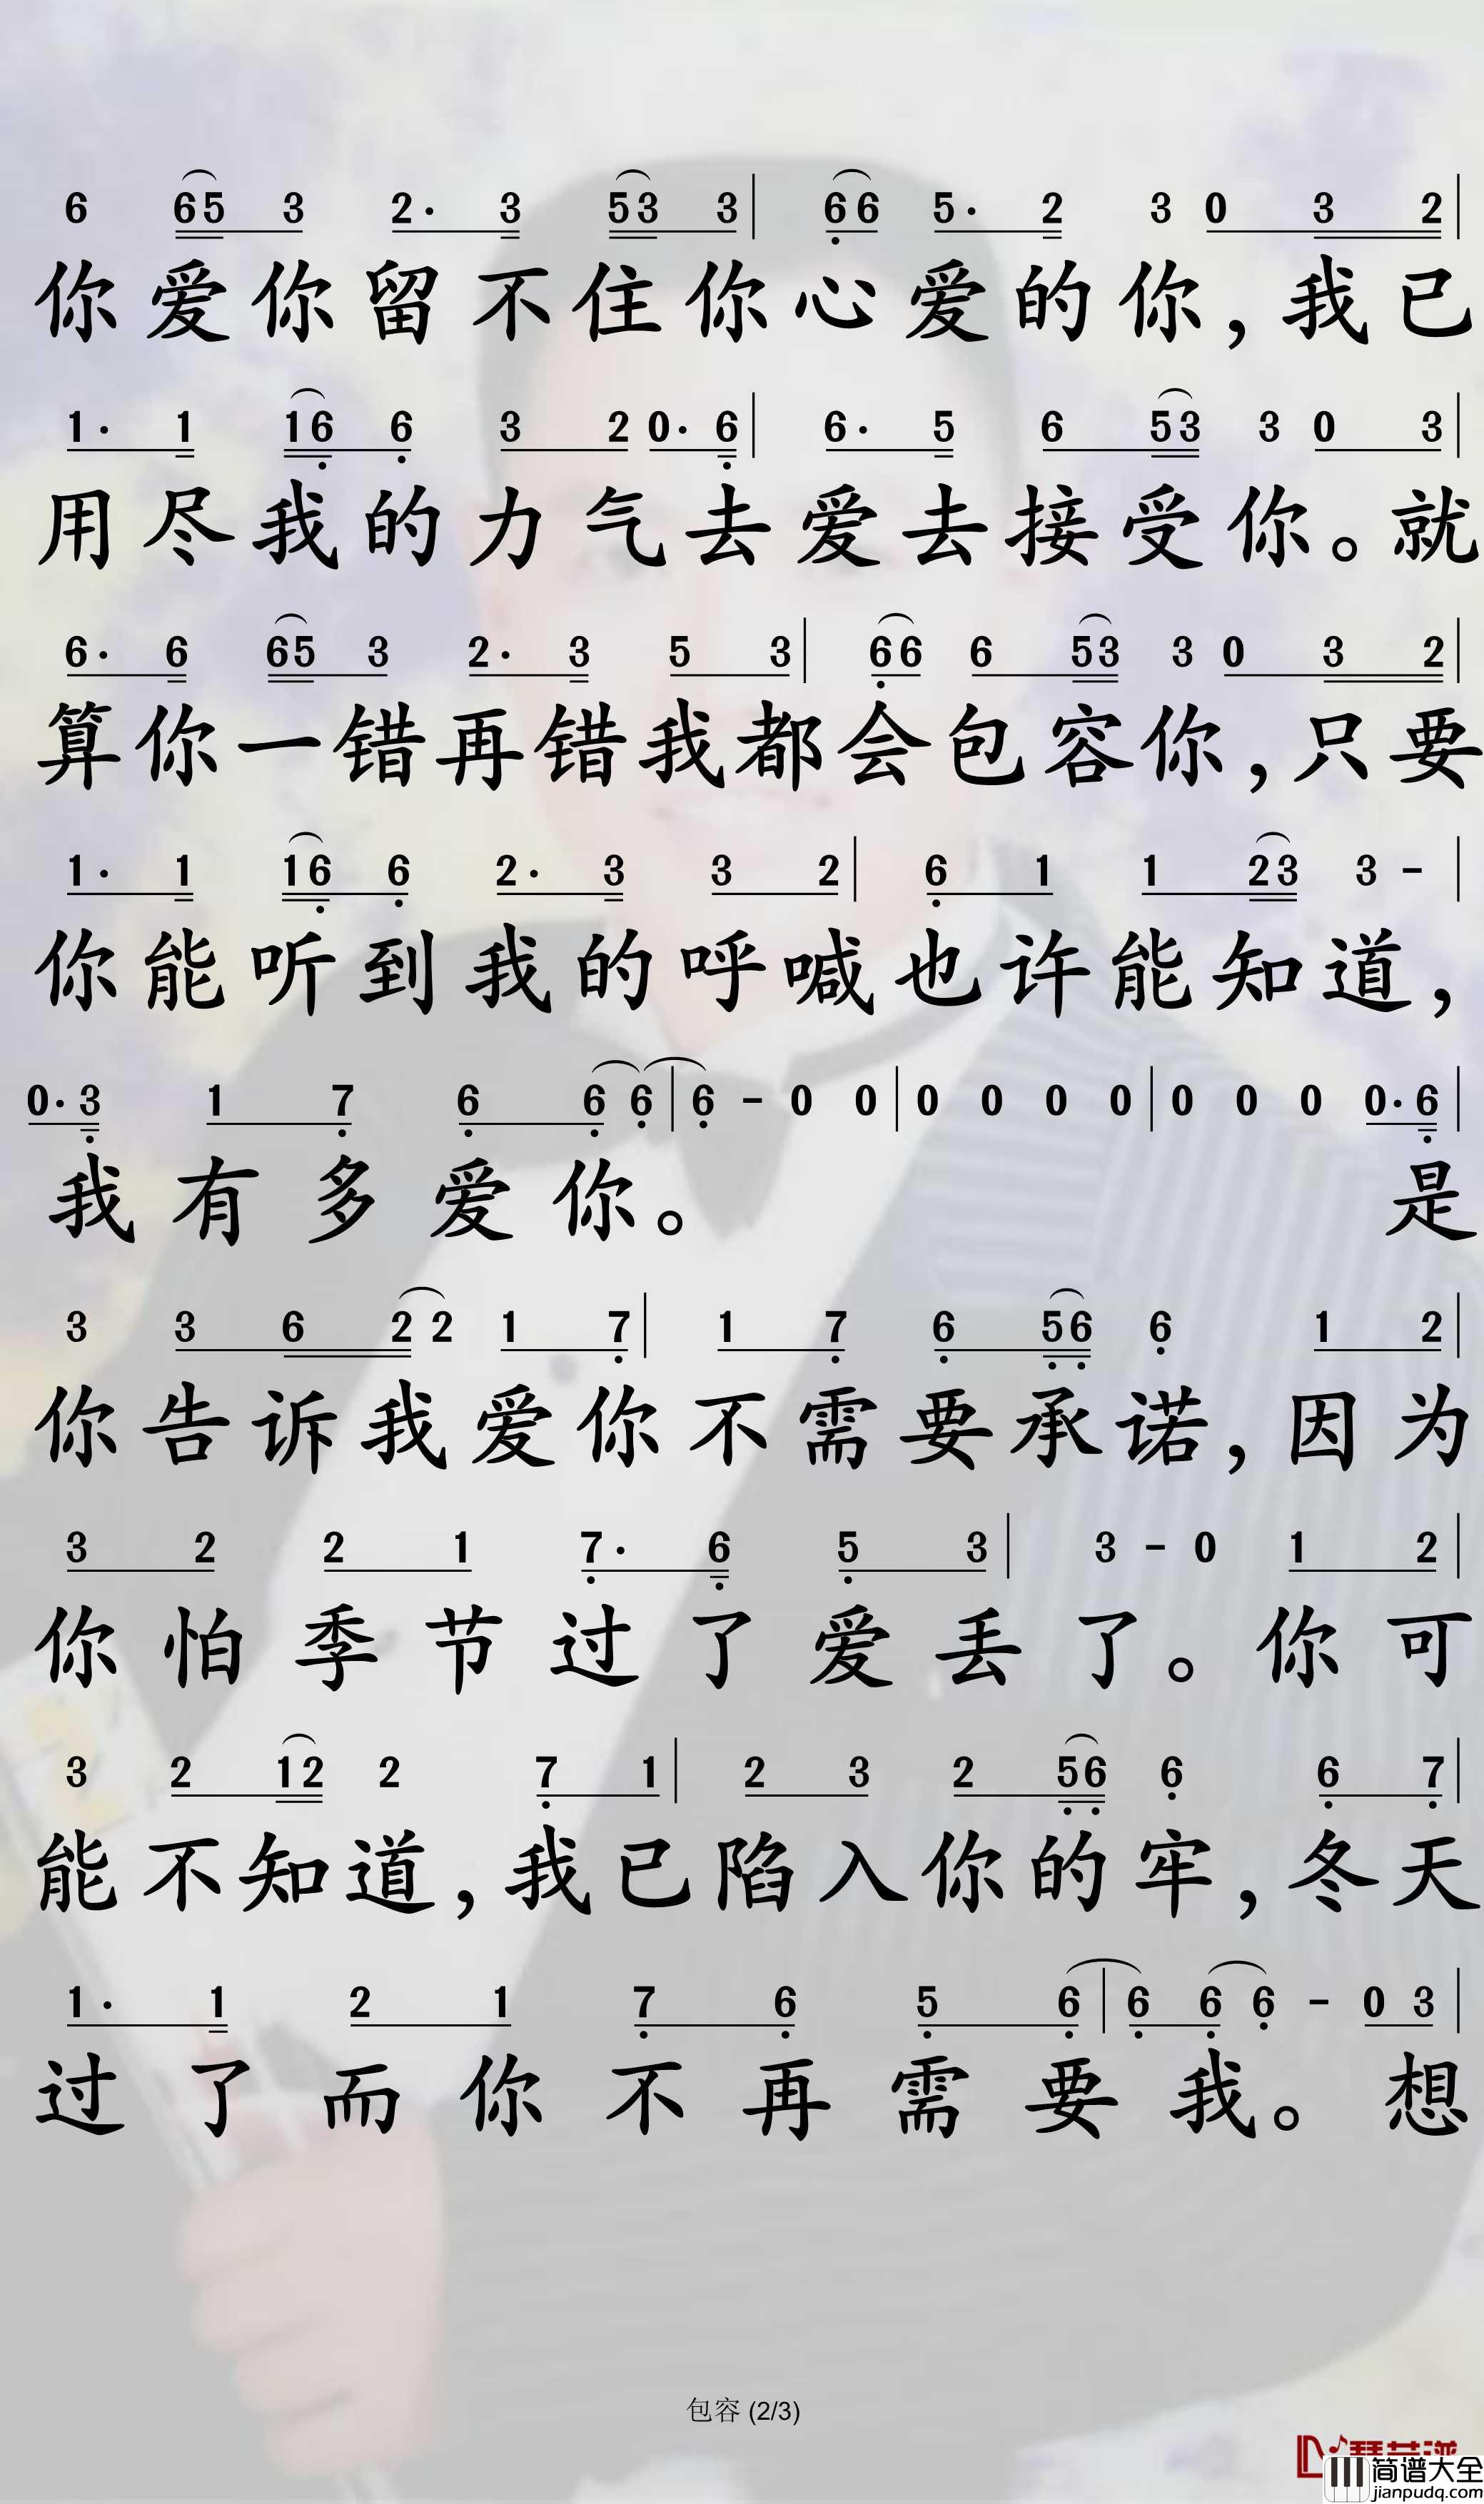 6 65 3 2· 3 53 3 | 66 5· 2 3 0 3 2 |
你爱你留不住你心爱的你，我已
1· 1 16 6 3 2 0· 6 | 6· 5 6 53 3 0 3 |
用尽我的力气去爱去接受你。就
6· 6 65 3 2· 3 5 3 | 66 6 53 3 0 3 2 |
算你一错再错我都会包容你，只要
1· 1 16 6 2· 3 3 2 | 6 1 1 23 3 - |
你能听到我的呼喊也许能知道，
0· 3 1 7 6 6 6 | 6 - 0 0 | 0 0 0 0 | 0 0 0 0· 6 |
我有多爱你。 是
3 3 6 2 2 1 7 | 1 7 6 56 6 1 2 |
你告诉我爱你不需要承诺，因为
3 2 2 1 7· 6 5 3 | 3 - 0 1 2 |
你怕季节过了爱丢了。你可
3 2 12 2 7 1 | 2 3 2 56 6 6 7 |
能不知道，我已陷入你的牢，冬天
1· 1 2 1 7 6 5 6 | 6 6 6 - 0 3 |
过了而你不再需要我。想
包容 (2/3)
简谱大全
jianpudq.com